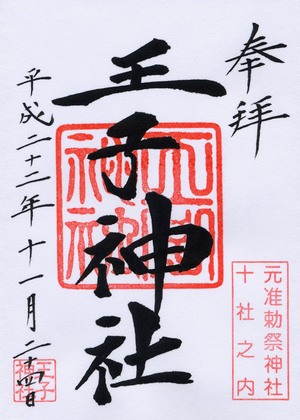 奉拝
元准勅祭神社
十社之内
王子神社
王子神社
平成二十二年十一月二十四日
王子
神社